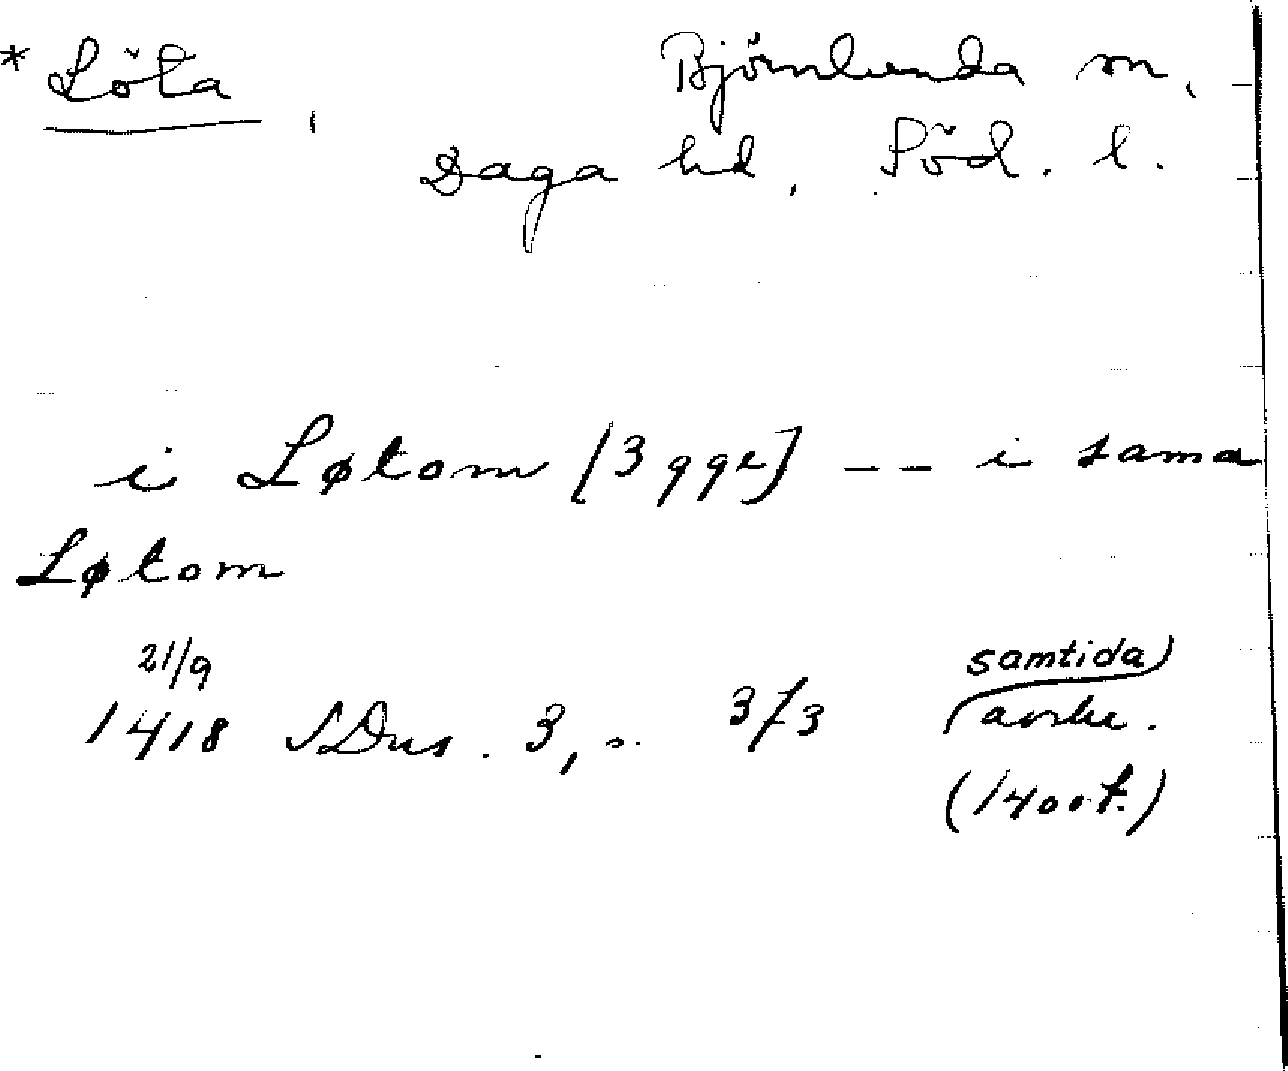 * Löta, Björnlunda sn,
Daga hd, Söd. l.
i Løtom [3 ggr] -- i sama
Løtom
21/9
1418 SDns. 3, s. 373 samtida)
avskr.
(1400t.)